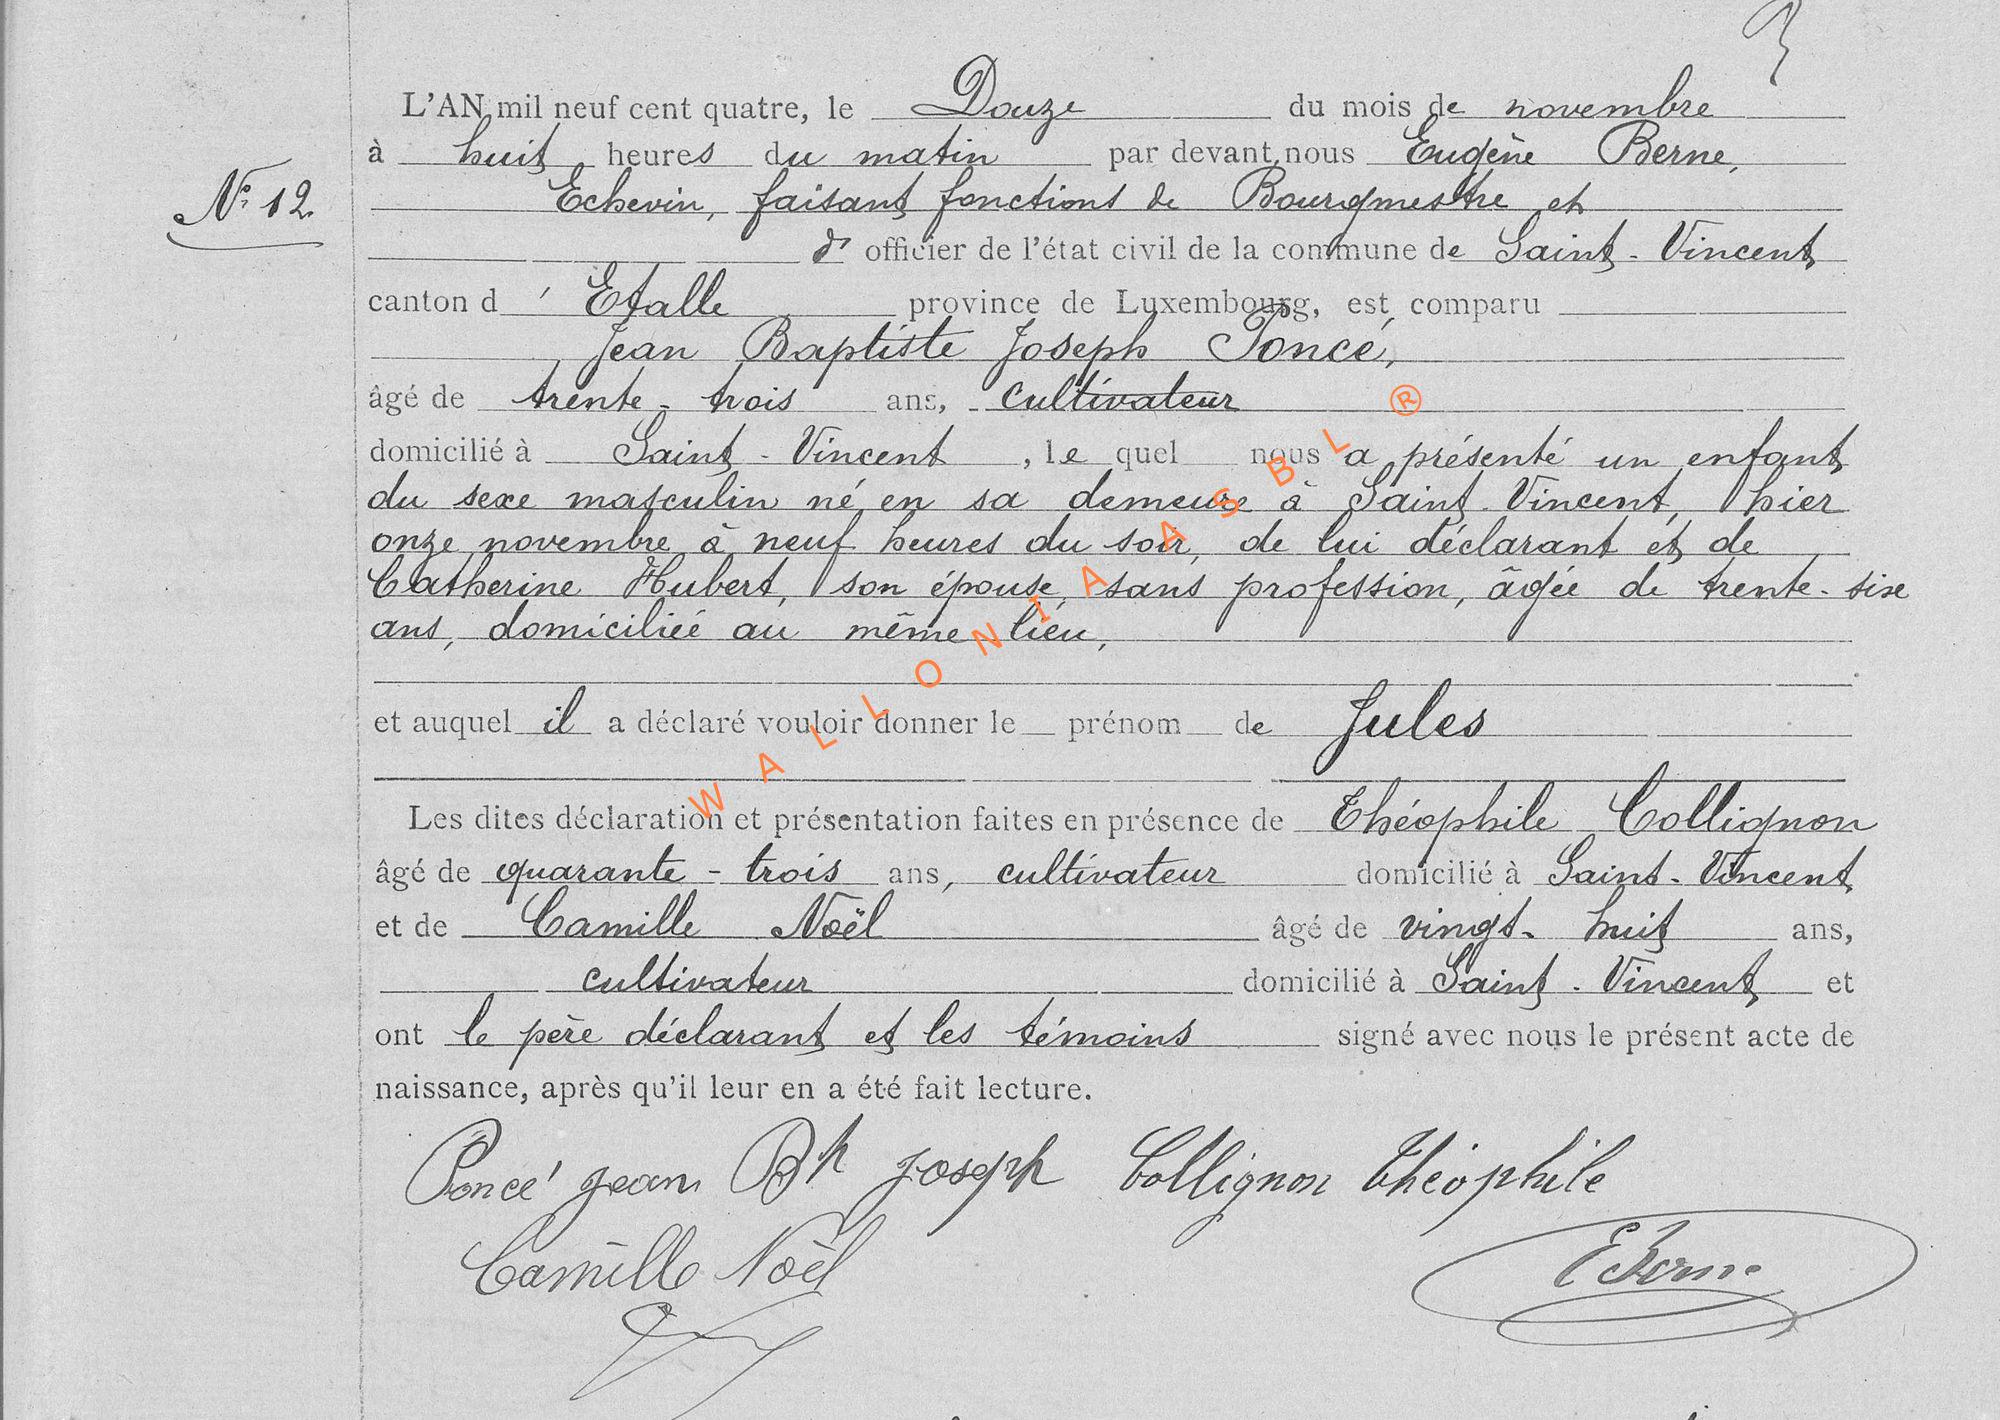 L'AN mil neuf cent quatre, le Douze du mois de novembre
à huit heures du matin par devant nous Eugène Berne,
N° 12. Echevin, faisant fonctions de Bourgmestre et
d' officier de l'état civil de la commune de Saint-Vincent
canton d' Etalle province de Luxembourg, est comparu
Jean Baptiste Joseph Poncé,
âgé de trente-trois ans, cultivateur
domicilié à Saint-Vincent, le quel nous a présenté un enfant
du sexe masculin né en sa demeure à Saint-Vincent, hier
onze novembre à neuf heures du soir, de lui déclarant et de
Catherine Hubert, son épouse, sans profession, âgée de trente-six
ans, domiciliée au même lieu,
et auquel il a déclaré vouloir donner le prénom de Jules
Les dites déclaration et présentation faites en présence de Théophile Collignon
âgé de quarante-trois ans, cultivateur domicilié à Saint-Vincent
et de Camille Noël âgé de vingt-huit ans,
cultivateur domicilié à Saint-Vincent et
ont le père déclarant et les témoins signé avec nous le présent acte de
naissance, après qu'il leur en a été fait lecture.
Poncé jean Bt joseph Collignon Théophile
Camille Noël E Berne
WALLONIA ASBL ®